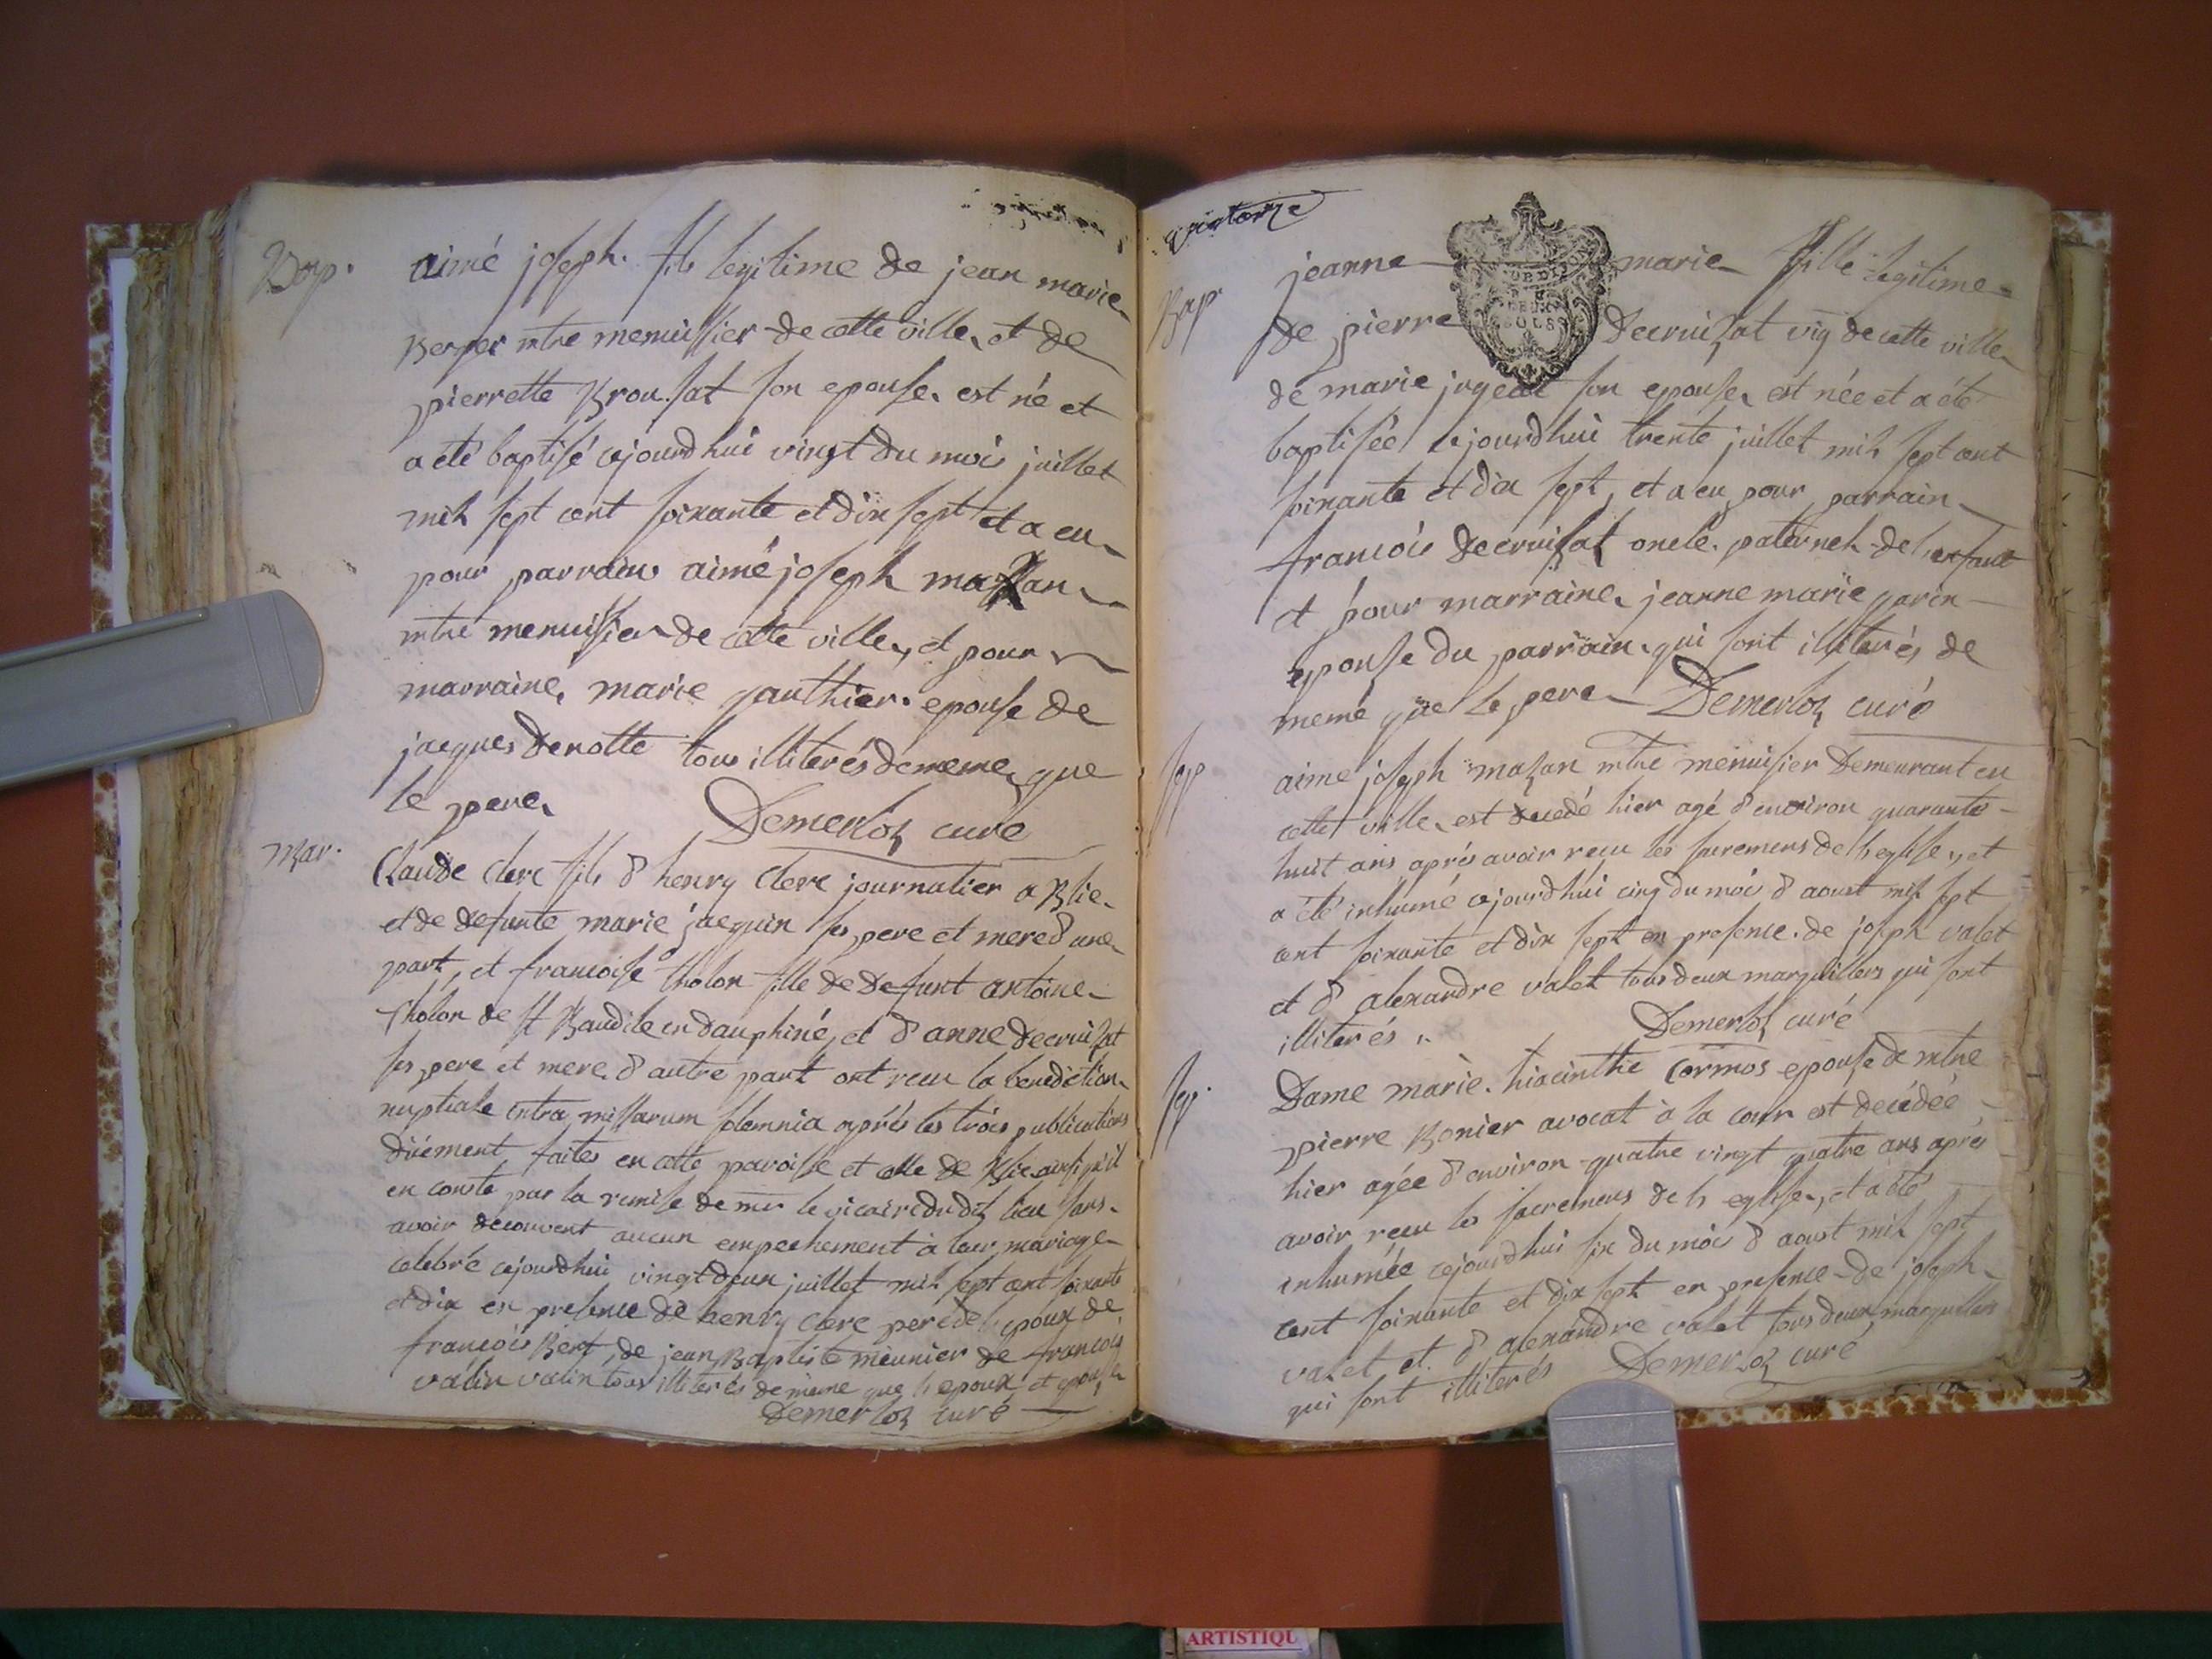 Bap.
aimé joseph. fils legitime de jean marie
Berger mtre menuissier de cette ville, et de
pierrette Brousat son epouse, est né et
a eté baptisé cejourdhui vingt du mois juillet
mil sept cent soixante et dix sept et a eu
pour parrain aimé joseph mazan
mtre menuisier de cette ville, et pour
marraine, marie gauthier. epouse de
jacques denotte tous illiterés de meme, que
le pere,
Demerloz curé
Mar.
Claude Clerc fils d'henry Clerc journalier a Blie
et de defunte marie jacquin ses pere et mere d'une
part, et francoise tholon fille de defunt antoine
tholon de st Baudile en dauphiné, et d'anne decruisat
ses pere et mere, d'autre part ont recu la benediction
nuptiale intra missarum solemnia aprés les trois publications
düement faites en cette paroisse et celle de Blie ainsi qu'il
en conste par la remise de mr le vicaire du dit lieu sans
avoir decouvert aucun empechement à leur mariage
celebré cejourdhui vingt deux juillet mil sept cent soixante
et dix en presence de henry clerc pere de l'epoux de
francois Bert, de jean Baptiste meunier de francois
valin tous illiterés de meme que l'epoux et epouse
Demerloz curé
quatorze
Bap.
jeanne marie fille legitime
de pierre Decruisat vig de cette ville
de marie jugeat son epouse, est née et a été
baptisée cejourdhui trente juillet mil sept cent
soixante et dix sept, et a eu pour parrain
francois decruisat oncle. paternel de l'enfant
et pour marraine, jeanne marie garin
epouse du parrain. qui sont illiterés de
meme que le pere Demerloz curé
Sep
aime joseph mazan mtre menuisier Demeurant en
cette ville, est decedé hier agé d'environ quarante
huit ans aprés avoir reçu les sacremens de l'eglise, et
a été inhumé cejourdhui cinq du mois d'aoust mil sept
cent soixante et dix sept en presence. de joseph valet
et d'alexandre valet tous deux marguilliers qui sont
illiterés.
Demerloz curé
Sep.
Dame marie. hiacinthe Cormos epouse de mtre
pierre Bonier avocat à la cour est decédée
hier agée d'environ quatre vingt quatre ans aprés
avoir reçu les sacremens de l'eglise, et a été
inhumée cejourdhui six du mois d'aoust mil sept
cent soixante et dix sept en presence de joseph
valet et. d'alexandre valet tous deux marguilliers
qui sont illiterés Demerloz curé
ARTISTIQU